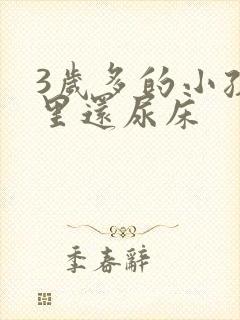 3歲多的小孩
里還尿床
季春辭